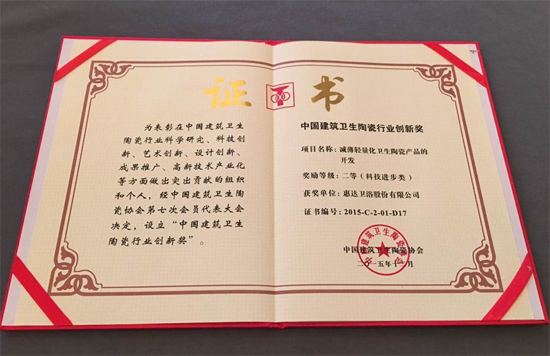 证书
为表彰在中国建筑卫生
陶瓷行业科学研究、科技创
新、艺术创新、设计创新、
成果推广、高新技术产业化
等方面做出突出贡献的组织
和个人，经中国建筑卫生陶
瓷协会第七次会员代表大会
决定，设立“中国建筑卫生
陶瓷行业创新奖”。
中国建筑卫生陶瓷行业创新奖
项目名称：减薄轻量化卫生陶瓷产品的
开发
奖励等级：二等（科技进步类）
获奖单位：惠达卫浴股份有限公司
证书编号：2015-C-2-01-D17
中国建筑卫生陶瓷协会
二〇一五年十一月